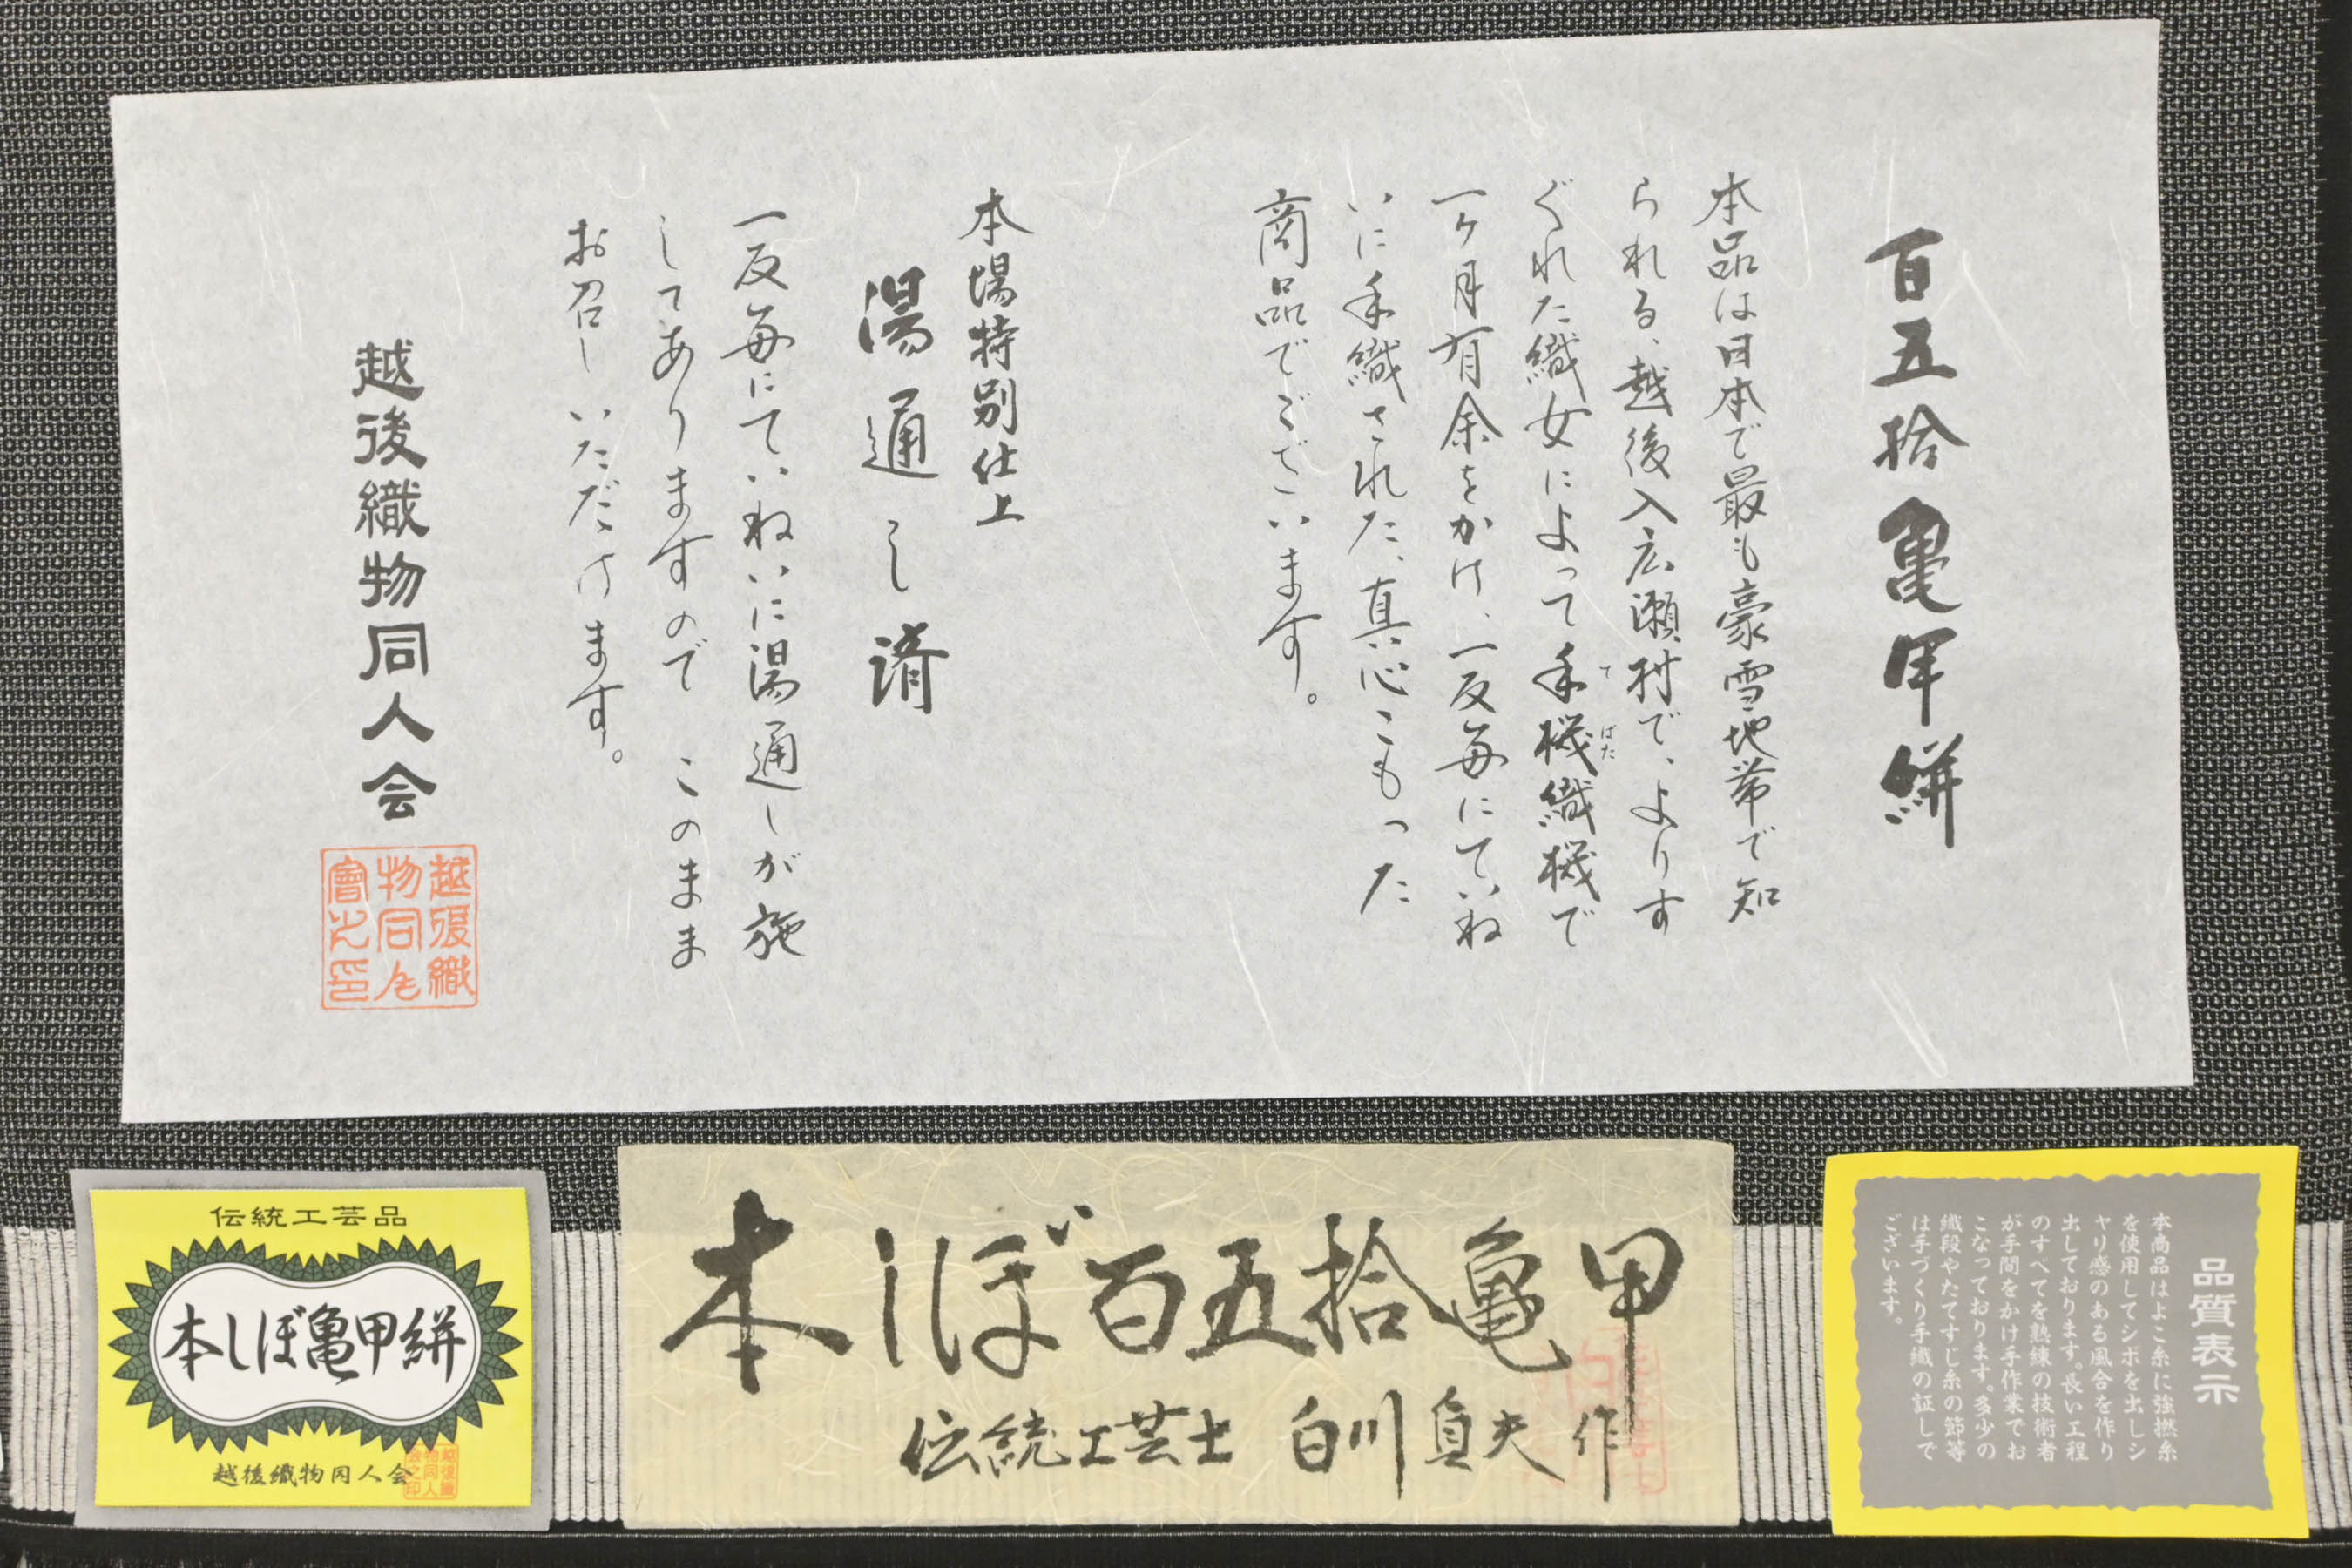 百五拾亀甲絣
本品は日本で最も豪雪地帯で知
られる、越後入広瀬村で、よりす
ぐれた織女によって手機織機で
てばた
一ヶ月有余をかけ、一反毎にていね
いに手織された、真心こもった
商品でございます。
本場特別仕上
湯通し済
一反毎にていねいに湯通しが施
してありますので このまま
お召しいただけます。
越後織物同人会
越後織
物同人
會之印
伝統工芸品
本しぼ亀甲絣
越後織物同人会
越後織
物同人
会之印
本しぼ百五拾亀甲
伝統工芸士 白川負夫作
品質表示
本商品はよこ糸に強撚糸
を使用してシボを出しシ
ャリ感のある風合を作り
出しております。長い工程
のすべてを熟練の技術者
が手間をかけ手作業でお
こなっております。多少の
織段やたてすじ糸の節等
は手づくり手織の証しで
ございます。